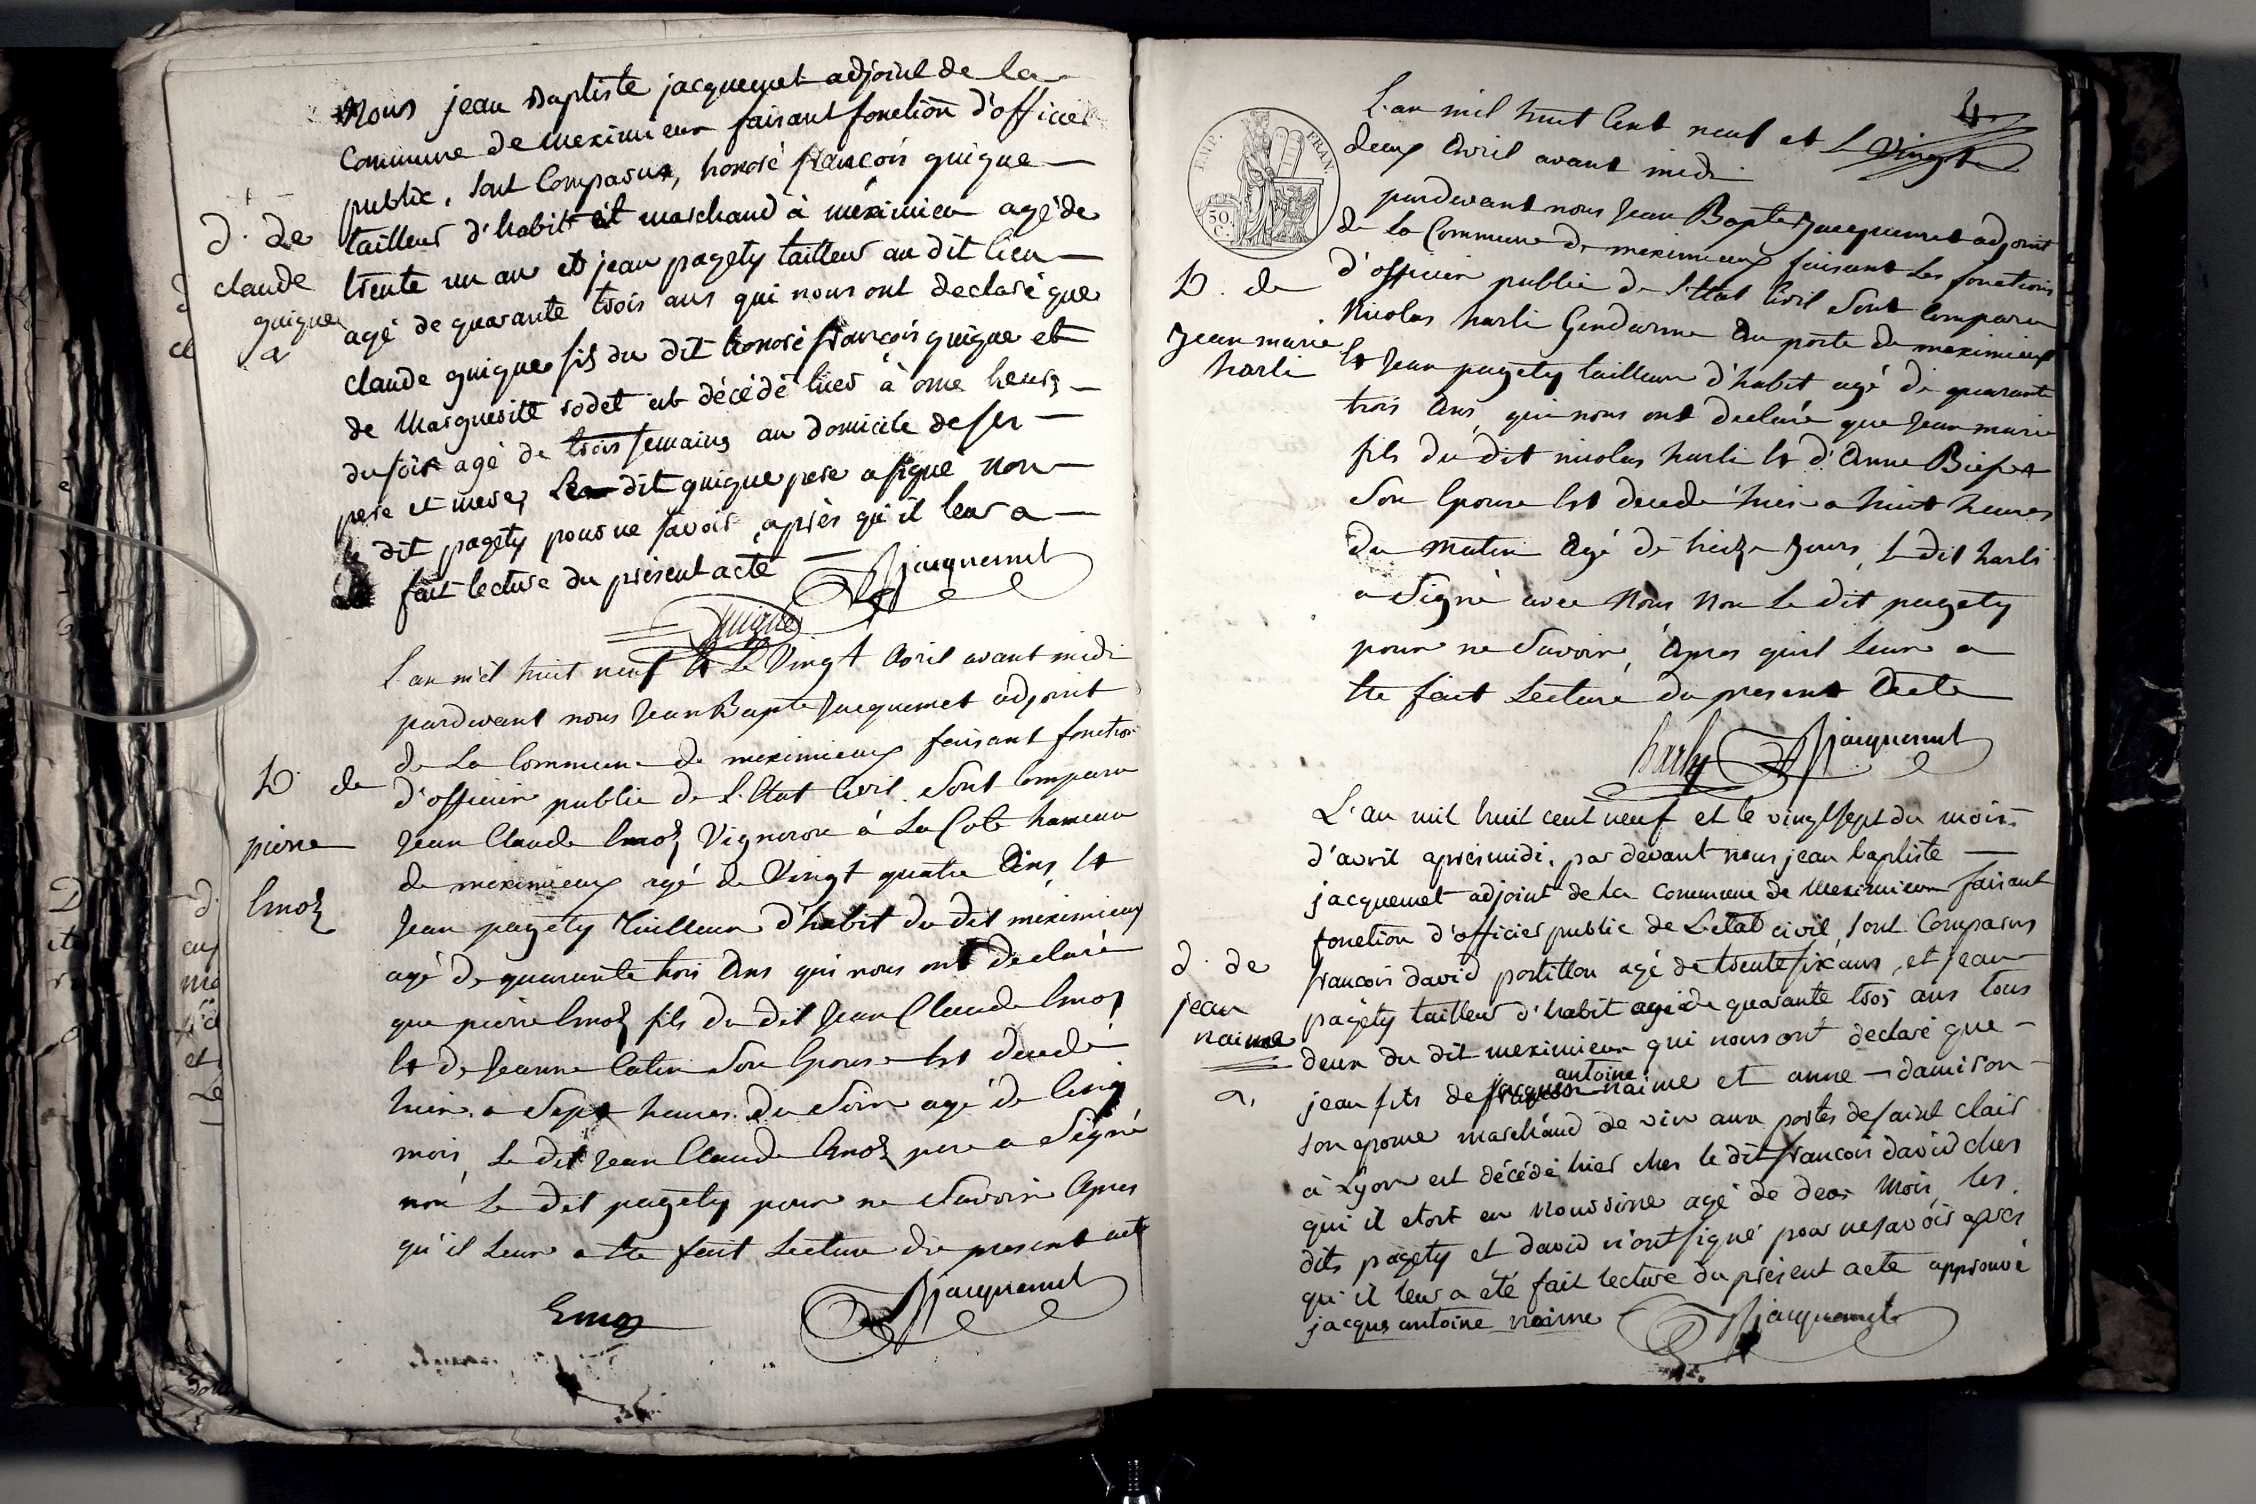 nous jean Baptiste jacquemet adjoint de la
commune de meximieux faisant fonction d'officier
public, sont comparus, honoré françois guigue
tailleur d'habit et marchand à méximieu agé de
trente un an et jean pagety tailleur au dit lieu
agé de quarante trois ans qui nous ont declaré que
claude guigue fils du dit honoré françois guigue et
de Marguerite rodet est décédé hier à onze heures
du soir agé de trois semaines au domicile de ses
pere et mere, Le dit guigue pere a signé non
le dit pagety pour ne savoir, après qu'il leur a
fait lecture du présent acte
Jacquemet
guigue
d. de
claude
guigue
L'an mil huit neuf et Le Vingt Avril avant midi
pardevant nous Jean Bapte Jacquemet adjoint
de La Commune de meximieux faisant fonction
d'officier public de L'Etat Civil Sont Comparu
Jean Claude Emoz Vigneron à La Cote hameau
de meximieux agé de Vingt quatre Ans, Et
Jean pagety Tailleur d'habit du dit meximieux
agé de quarante trois Ans qui nous ont declaré
que pierre Emoz fils du dit Jean Claude Emoz
Et de Jeanne Catin Son Epouse Est decedé
hier a Sept heures du Soir agé de Cinq
mois, Le dit Jean Claude Emoz pere a Signé
non Le dit pagety pour ne Savoir Apres
qu'il Leur a Ete fait Lecture du present acte
Emoz
Jacquemet
D. de
pierre
Emoz
4
L'an mil huit Cent neuf et L Vingt
deux Avril avant midi
pardevant nous Jean Bapte Jacquemet adjoint
de La Commune de meximieux faisant Les fonctions
d'officier public de L'Etat Civil Sont Comparu
Nicolas harli Gendarme Au poste de meximieux
Et Jean pagety tailleur d'habit agé de quarante
trois Ans, qui nous ont declaré que Jean marie
fils du dit nicolas harli Et d'Anne
Son Epouse Est decedé hier a huit heures
du matin Agé de treize Jours, L dit harli
a Signé avec Nous Non Le dit pagety
pour ne Savoir, Apres qu'il Leur a
Ete fait Lecture du present Acte
harly
Jacquemet
EMP. FRAN.
50 C.
D. de
Jean marie
harli
L'an mil huit cent neuf et le vingt sept du mois
d'avril après midi, par devant nous jean baptiste
jacquemet adjoint de la commune de Meximieux faisant
fonction d'officier public de L'état civil, sont Comparus
françois david postillon agé de trente six ans, et jean
pagéty tailleur d'habit agé de quarante trois ans tous
deux du dit meximieux qui nous ont declaré que
antoine
jean fils de jacques naime et anne damiron
son epouse marchand de vin aux portes de saint clair
à Lyon est décédé hier ches le dit françois david ches
qui il etoit en nourrine agé de deux mois, les
dits pagety et david n'ont signé pour ne savoir après
qu'il leur a été fait lecture du présent acte approuvé
jacques antoine naime
Jacquemet
d. de
jean
naime